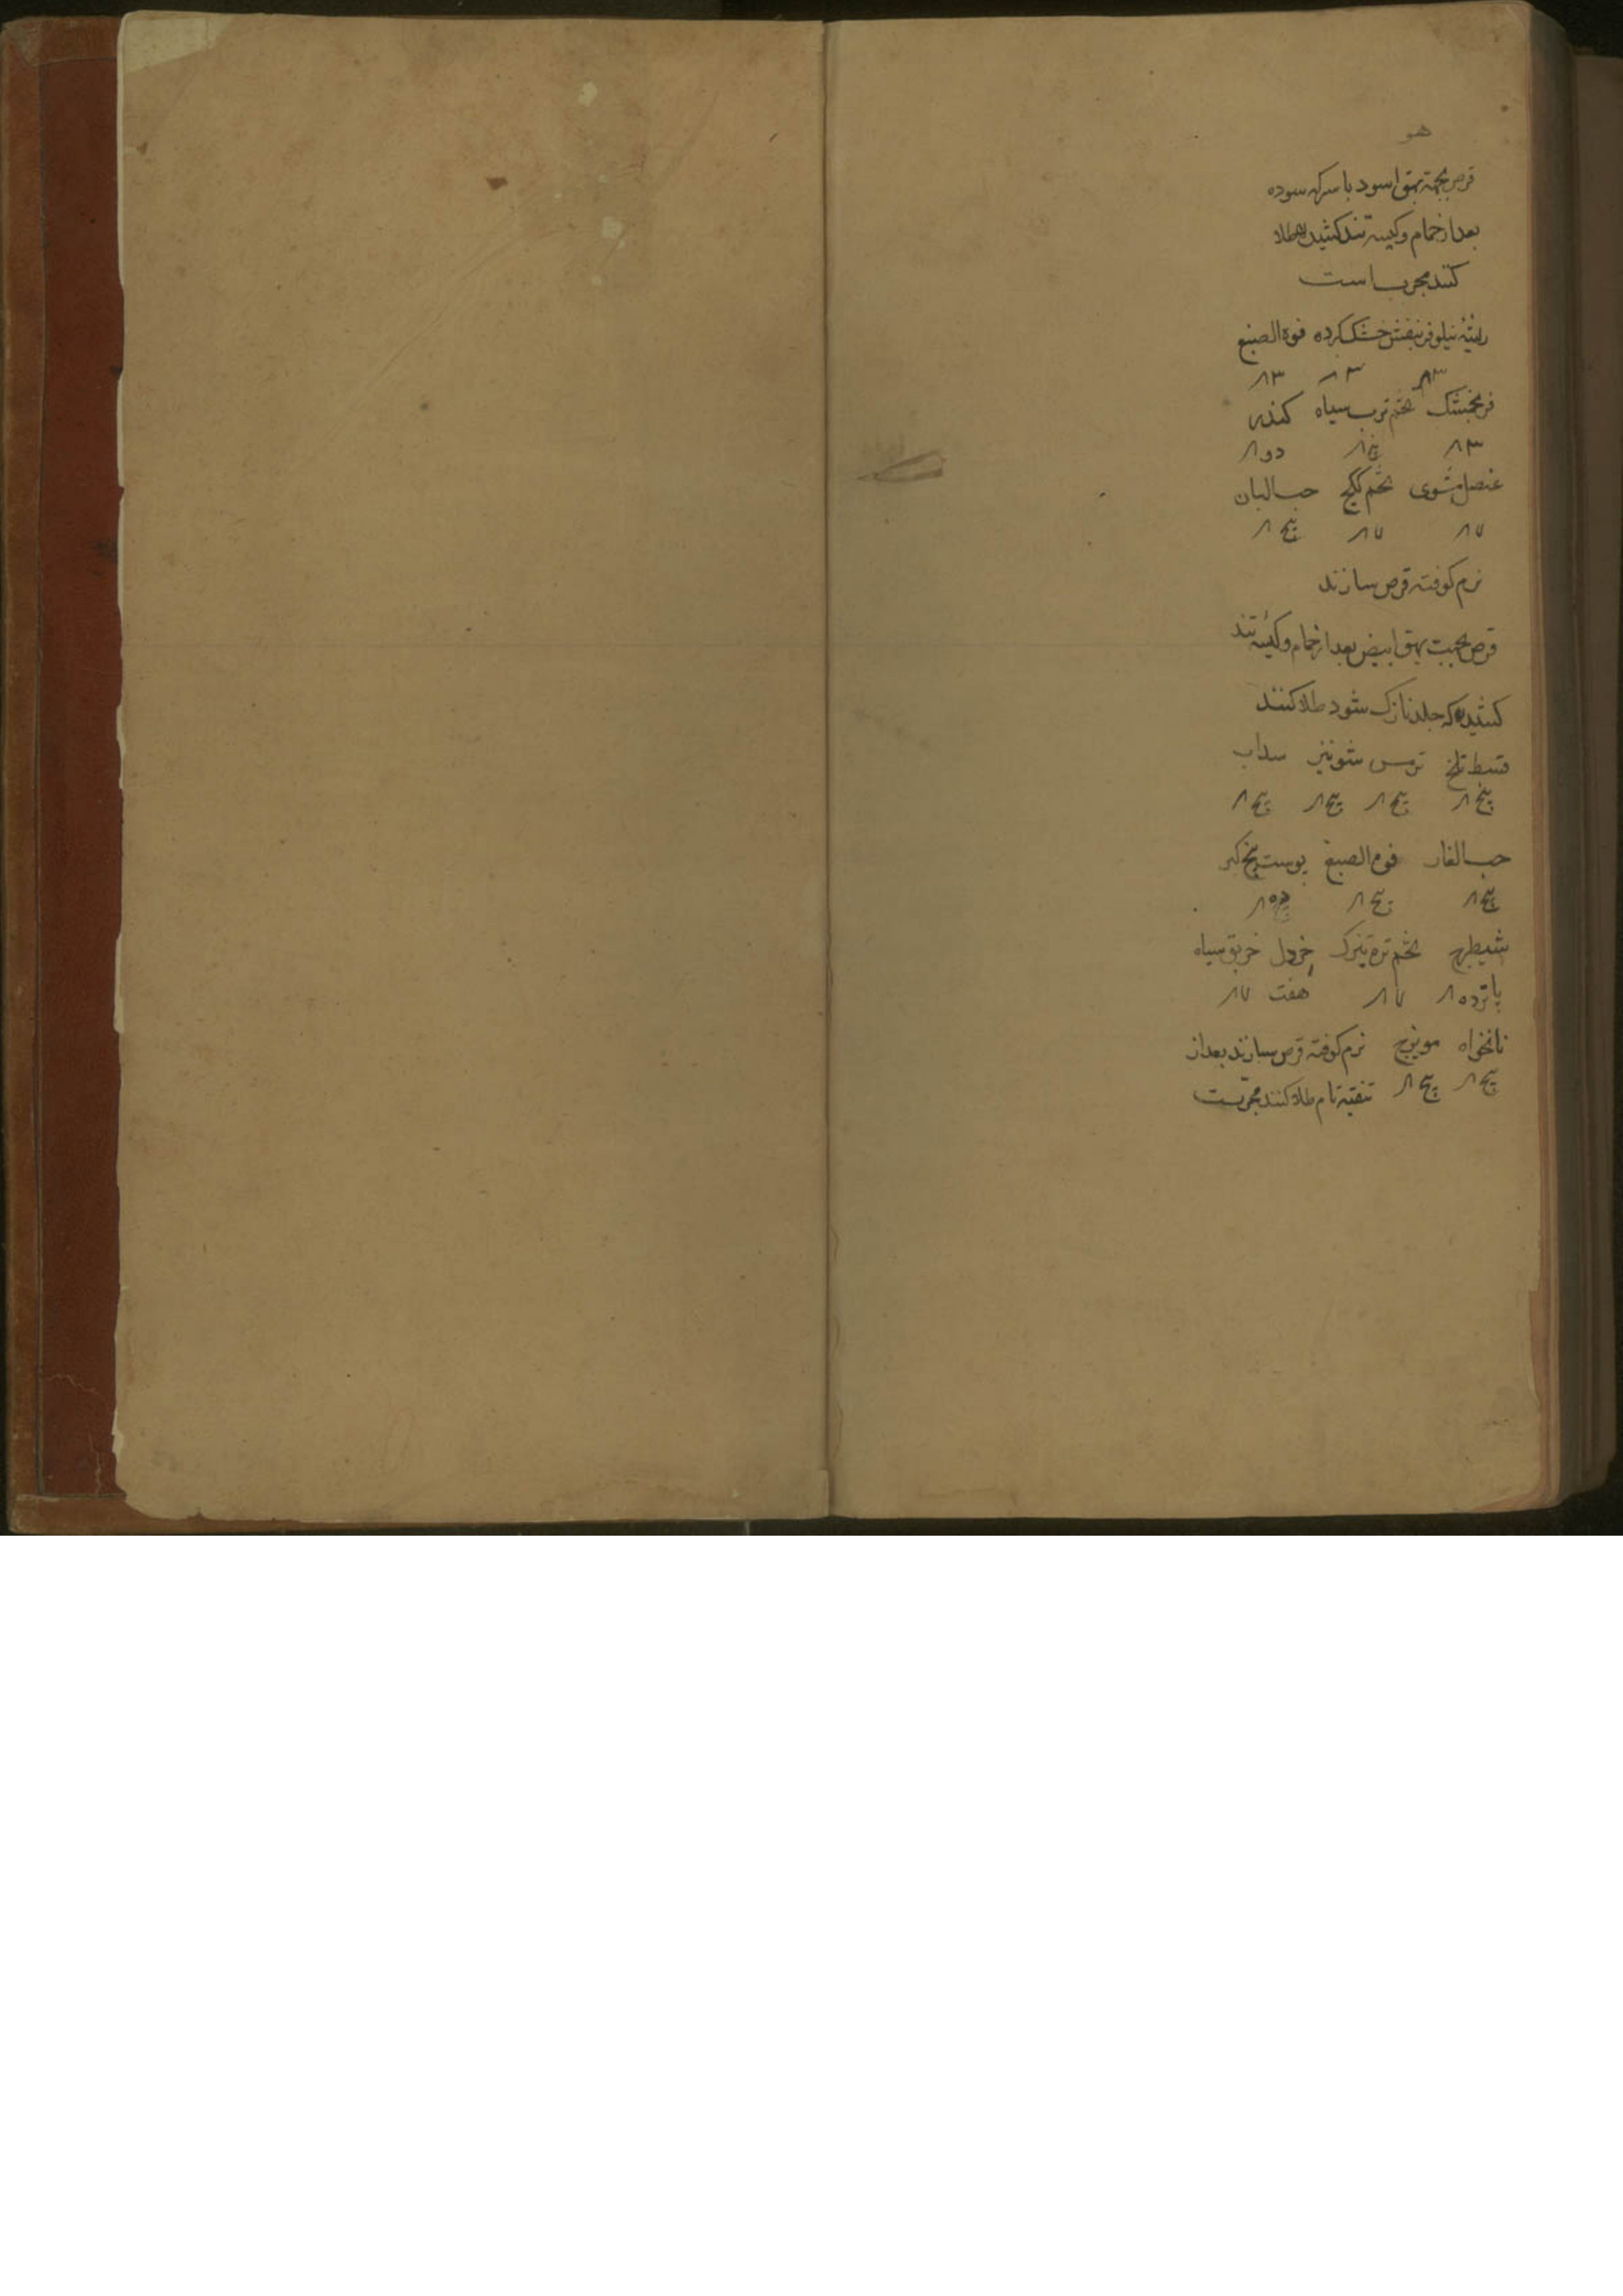 هو
قرص بجهة بهق اسود با سرکه سوده
بعد از حمام و کیسه تند کشیدن طلا
کنند مجرب است
ریشه نیلوفر بنفش خشک کرده فوة الصبغ
۳ ۳ ۳
فرنجمشک تخم ترب سیاه کندر
۳ پنج دو
عنصل مشوی تخم کاکنج حب البان
۷ ۷ پنج
نرم کوفته قرص سازند
قرص بجهت بهق ابیض بعد از حمام و کیسه تند
کشیدن که جلد نازک شود طلا کنند
قسط تلخ ترمس شونیز سداب
پنج پنج پنج پنج
حب الغار فوة الصبغ پوست بیخ کبر
پنج پنج ده
شیطرج تخم تره تیزک خردل خربق سیاه
پانزده ۷ هفت ۷
نانخواه مویزج نرم کوفته قرص سازند بعد از
پنج پنج تنقیه تام طلا کنند مجربست